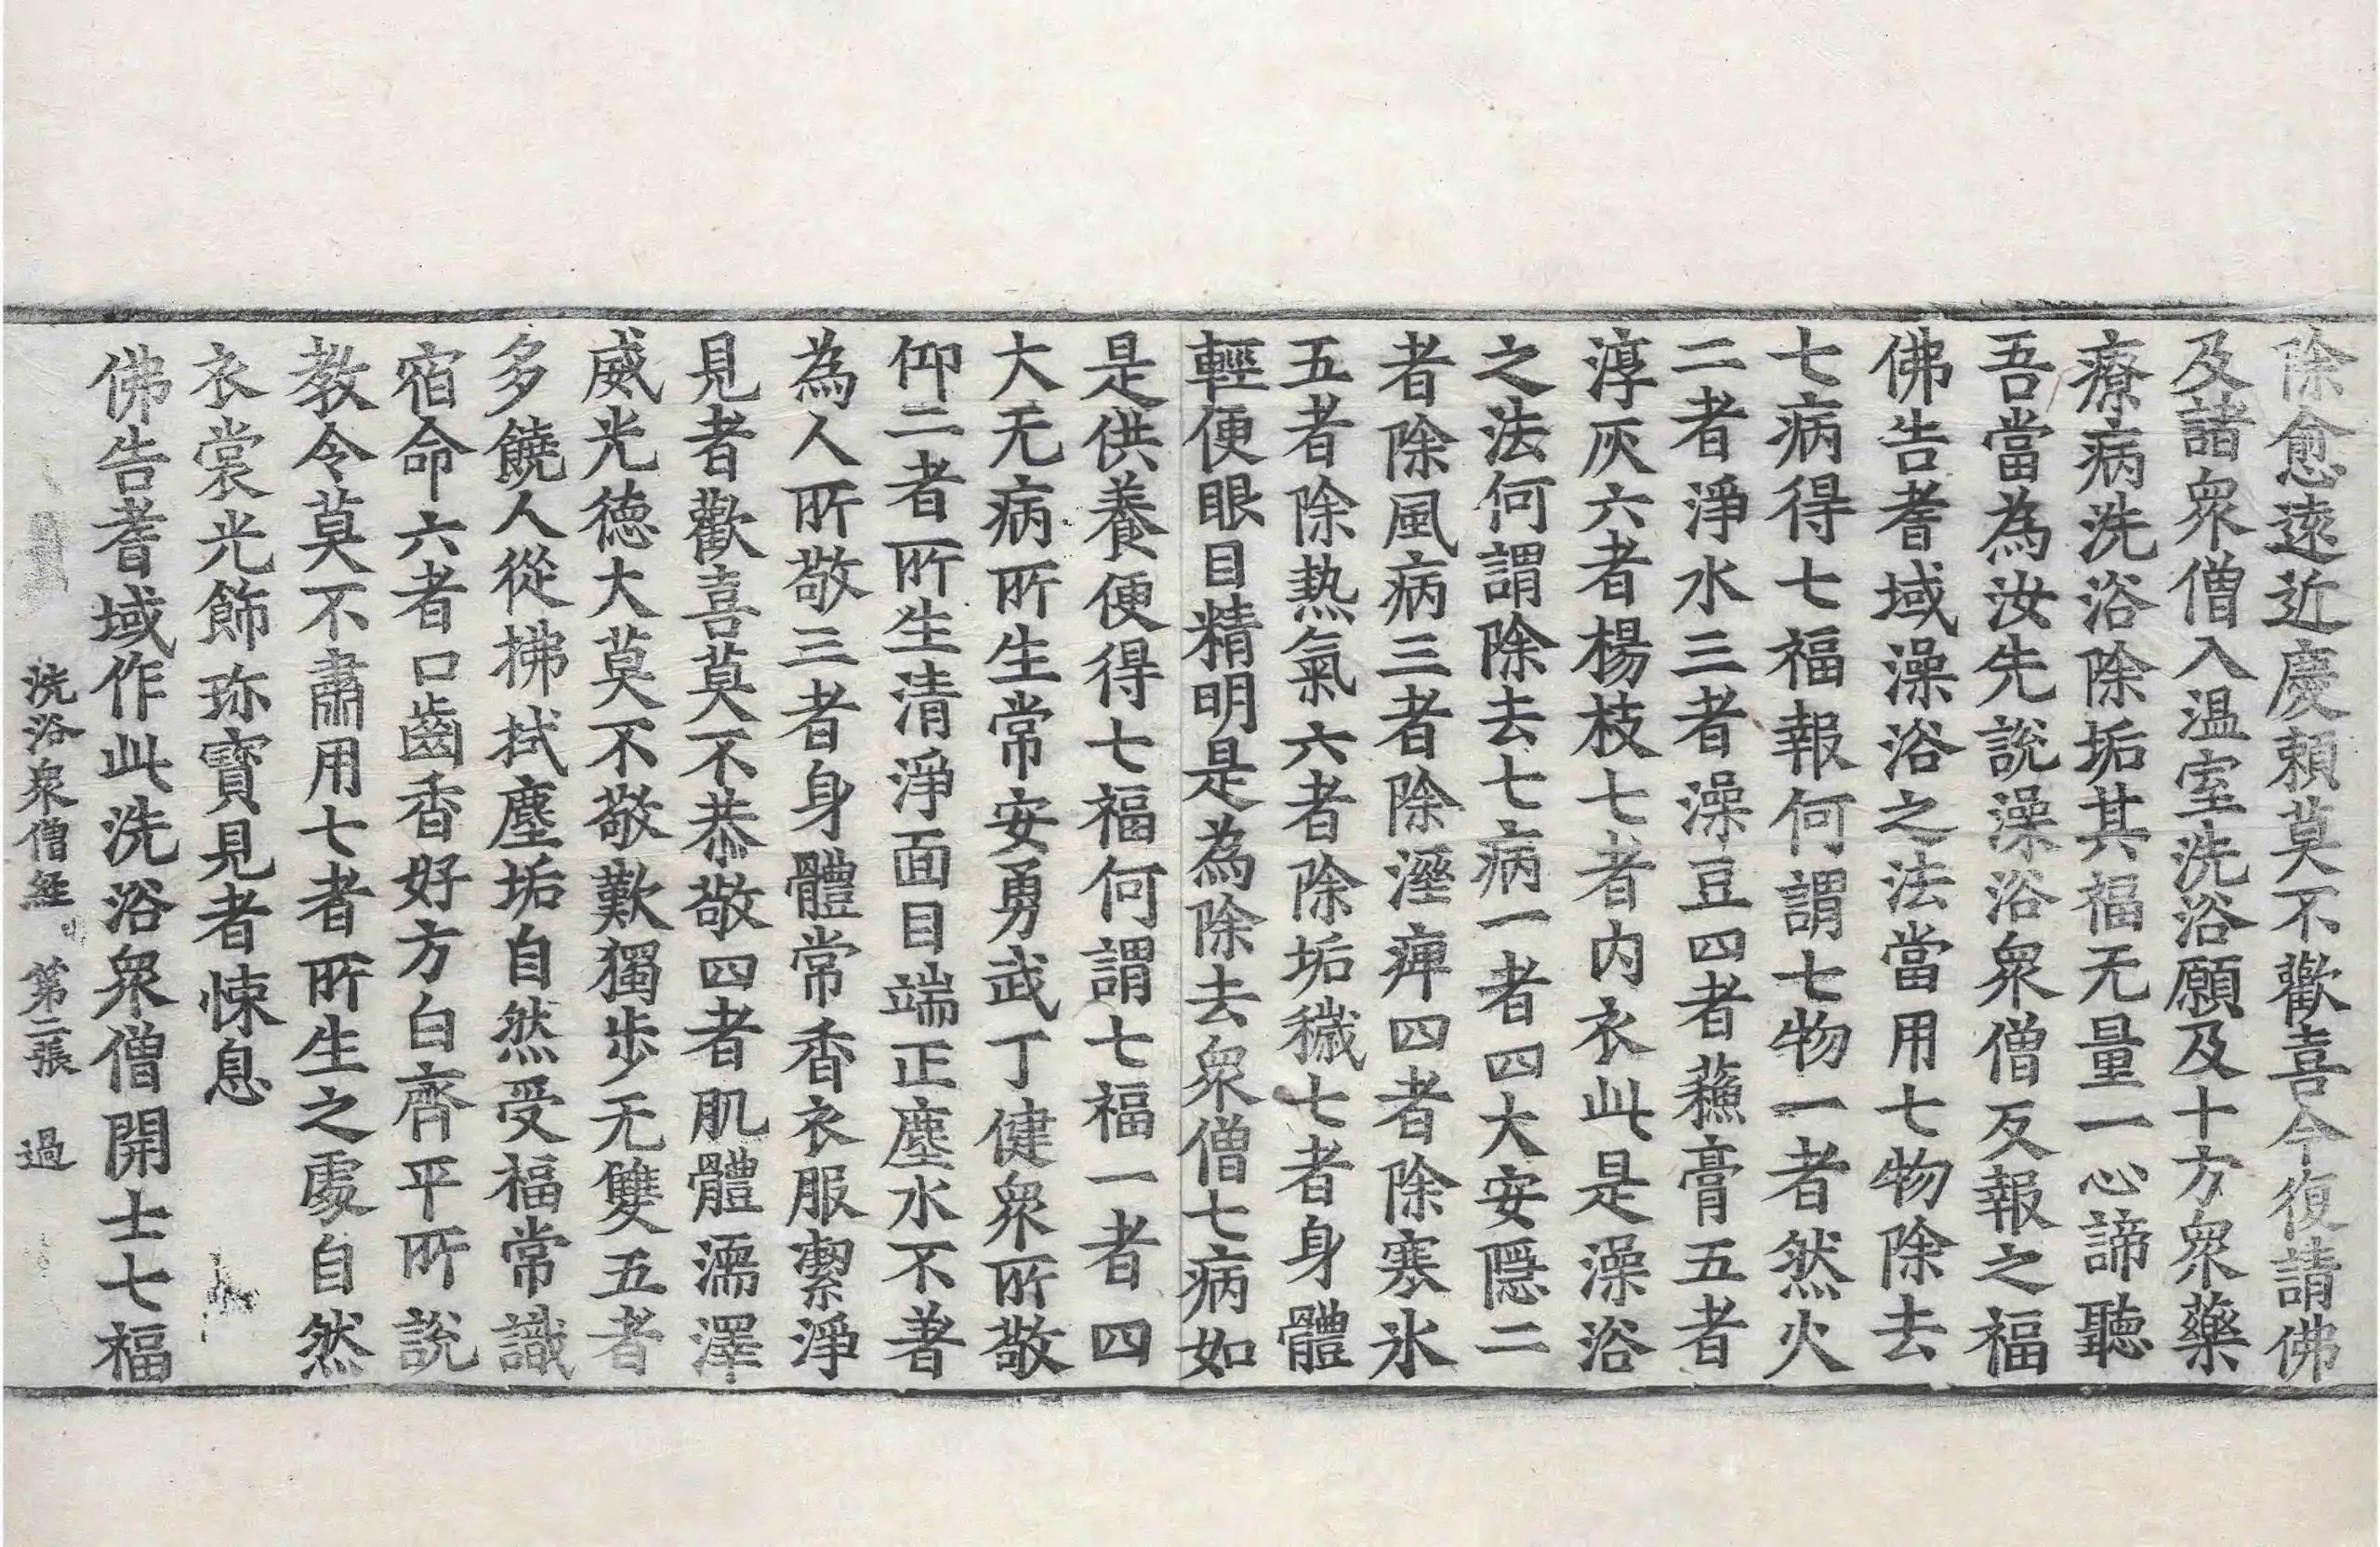 除愈遠近慶賴莫不歡喜今復請佛
及諸衆僧入溫室洗浴願及十方衆藥
療病洗浴除垢其福无量一心諦聽
吾當為汝先說澡浴衆僧反報之福
佛告耆域澡浴之法當用七物除去
七病得七福報何謂七物一者然火
二者淨水三者澡豆四者蘓膏五者
淳灰六者楊枝七者內衣此是澡浴
之法何謂除去七病一者四大安隱二
者除風病三者除溼痺四者除寒氷
五者除熱氣六者除垢穢七者身體
輕便眼目精明是為除去衆僧七病如
是供養便得七福何謂七福一者四
大无病所生常安勇武丁健衆所敬
仰二者所生清淨面目端正塵水不著
為人所敬三者身體常香衣服潔淨
見者歡喜莫不恭敬四者肌體濡澤
威光德大莫不敬歎獨步无雙五者
多饒人從拂拭塵垢自然受福常識
宿命六者口齒香好方白齊平所說
教令莫不肅用七者所生之處自然
衣裳光飾珎寶見者悚息
佛告耆域作此洗浴衆僧開士七福
洗浴衆僧經 第二張 過